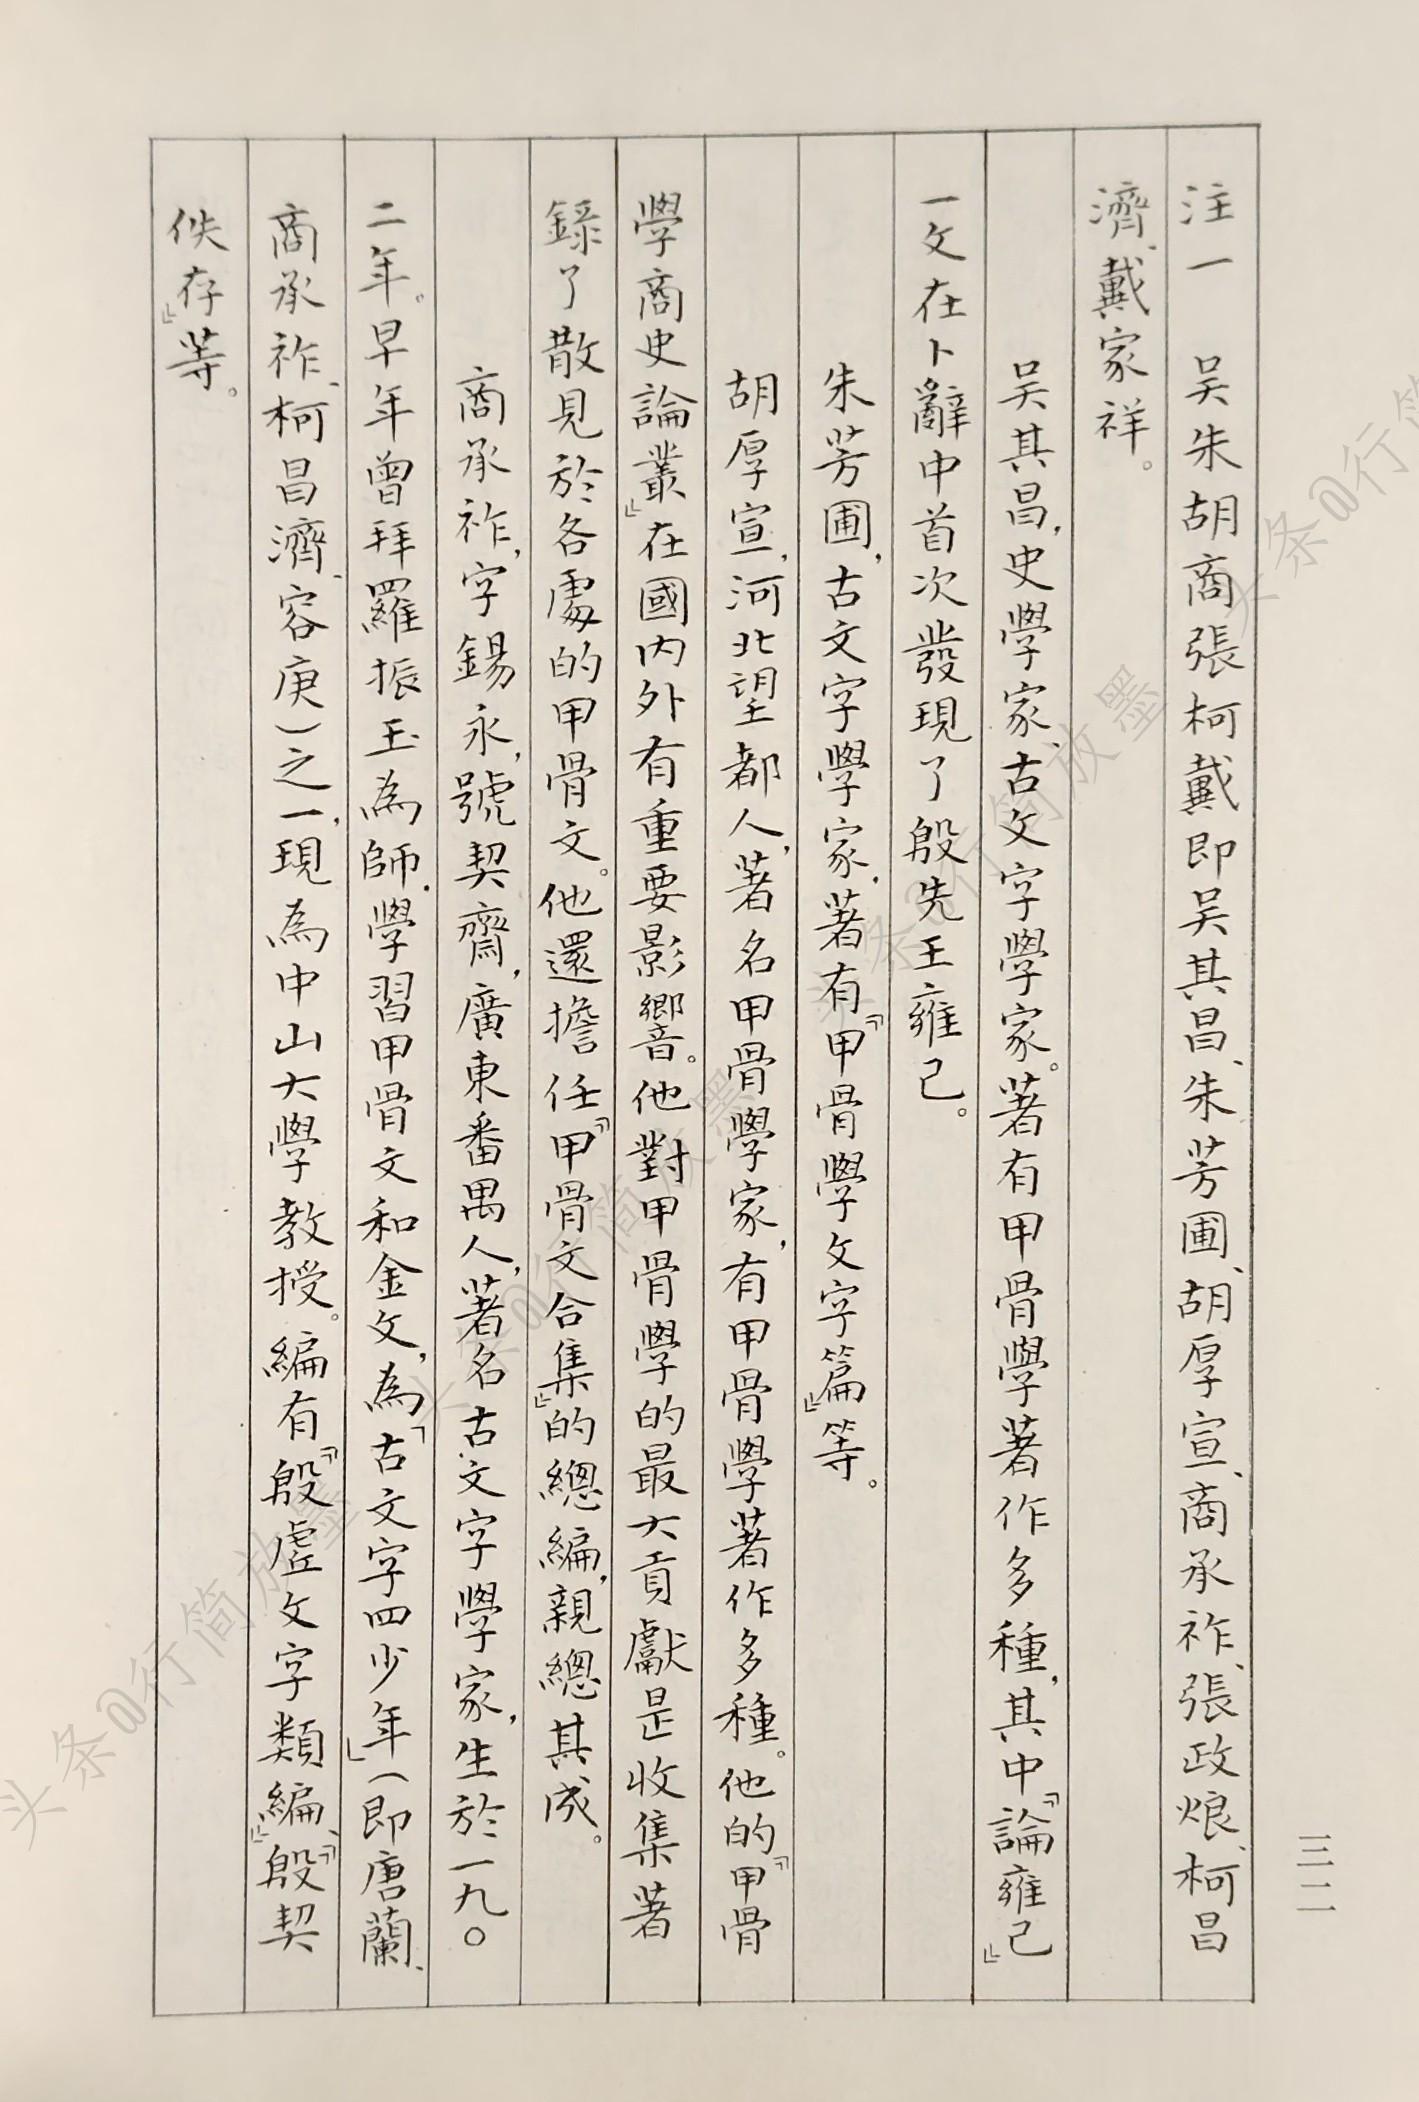 注一　吴朱胡商張柯戴即吴其昌、朱芳圃、胡厚宣、商承祚、張政烺、柯昌
濟、戴家祥。
吴其昌，史學家、古文字學家。著有甲骨學著作多種，其中「論雍己」
一文在卜辭中首次發現了殷先王雍己。
朱芳圃，古文字學家，著有『甲骨學文字篇』等。
胡厚宣，河北望都人，著名甲骨學家，有甲骨學著作多種。他的『甲骨
學商史論叢』在國内外有重要影響。他對甲骨學的最大貢獻是收集著
錄了散見於各處的甲骨文。他還擔任『甲骨文合集』的總編，親總其成。
商承祚，字錫永，號契齋，廣東番禺人，著名古文字學家，生於一九〇
二年。早年曾拜羅振玉為師，學習甲骨文和金文，為「古文字四少年」（即唐蘭、
商承祚、柯昌濟、容庚）之一，現為中山大學教授。編有『殷虚文字類編』、『殷契
佚存』等。
三二
头条@行简放墨
头条@行简放墨
头条@行简放墨
头条@行简